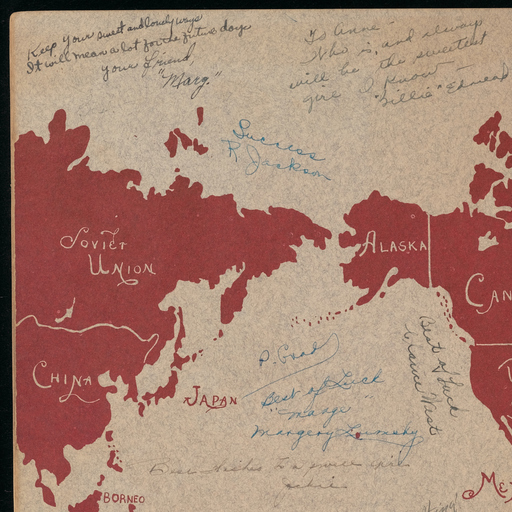 Keep your sweet and lovely ways
It will mean a lot for the future days
your friend,
"Marg."
To Anne
Who is, and always
will be the sweetest
girl I know
"Billie" Edmead
Success
R Jackson
SOVIET
UNION
ALASKA
CAN
CHINA
JAPAN
P. Good
Best of Luck
"Marge"
Margery
Best of Luck
West
Best wishes to a sweet girl
BORNEO
ME